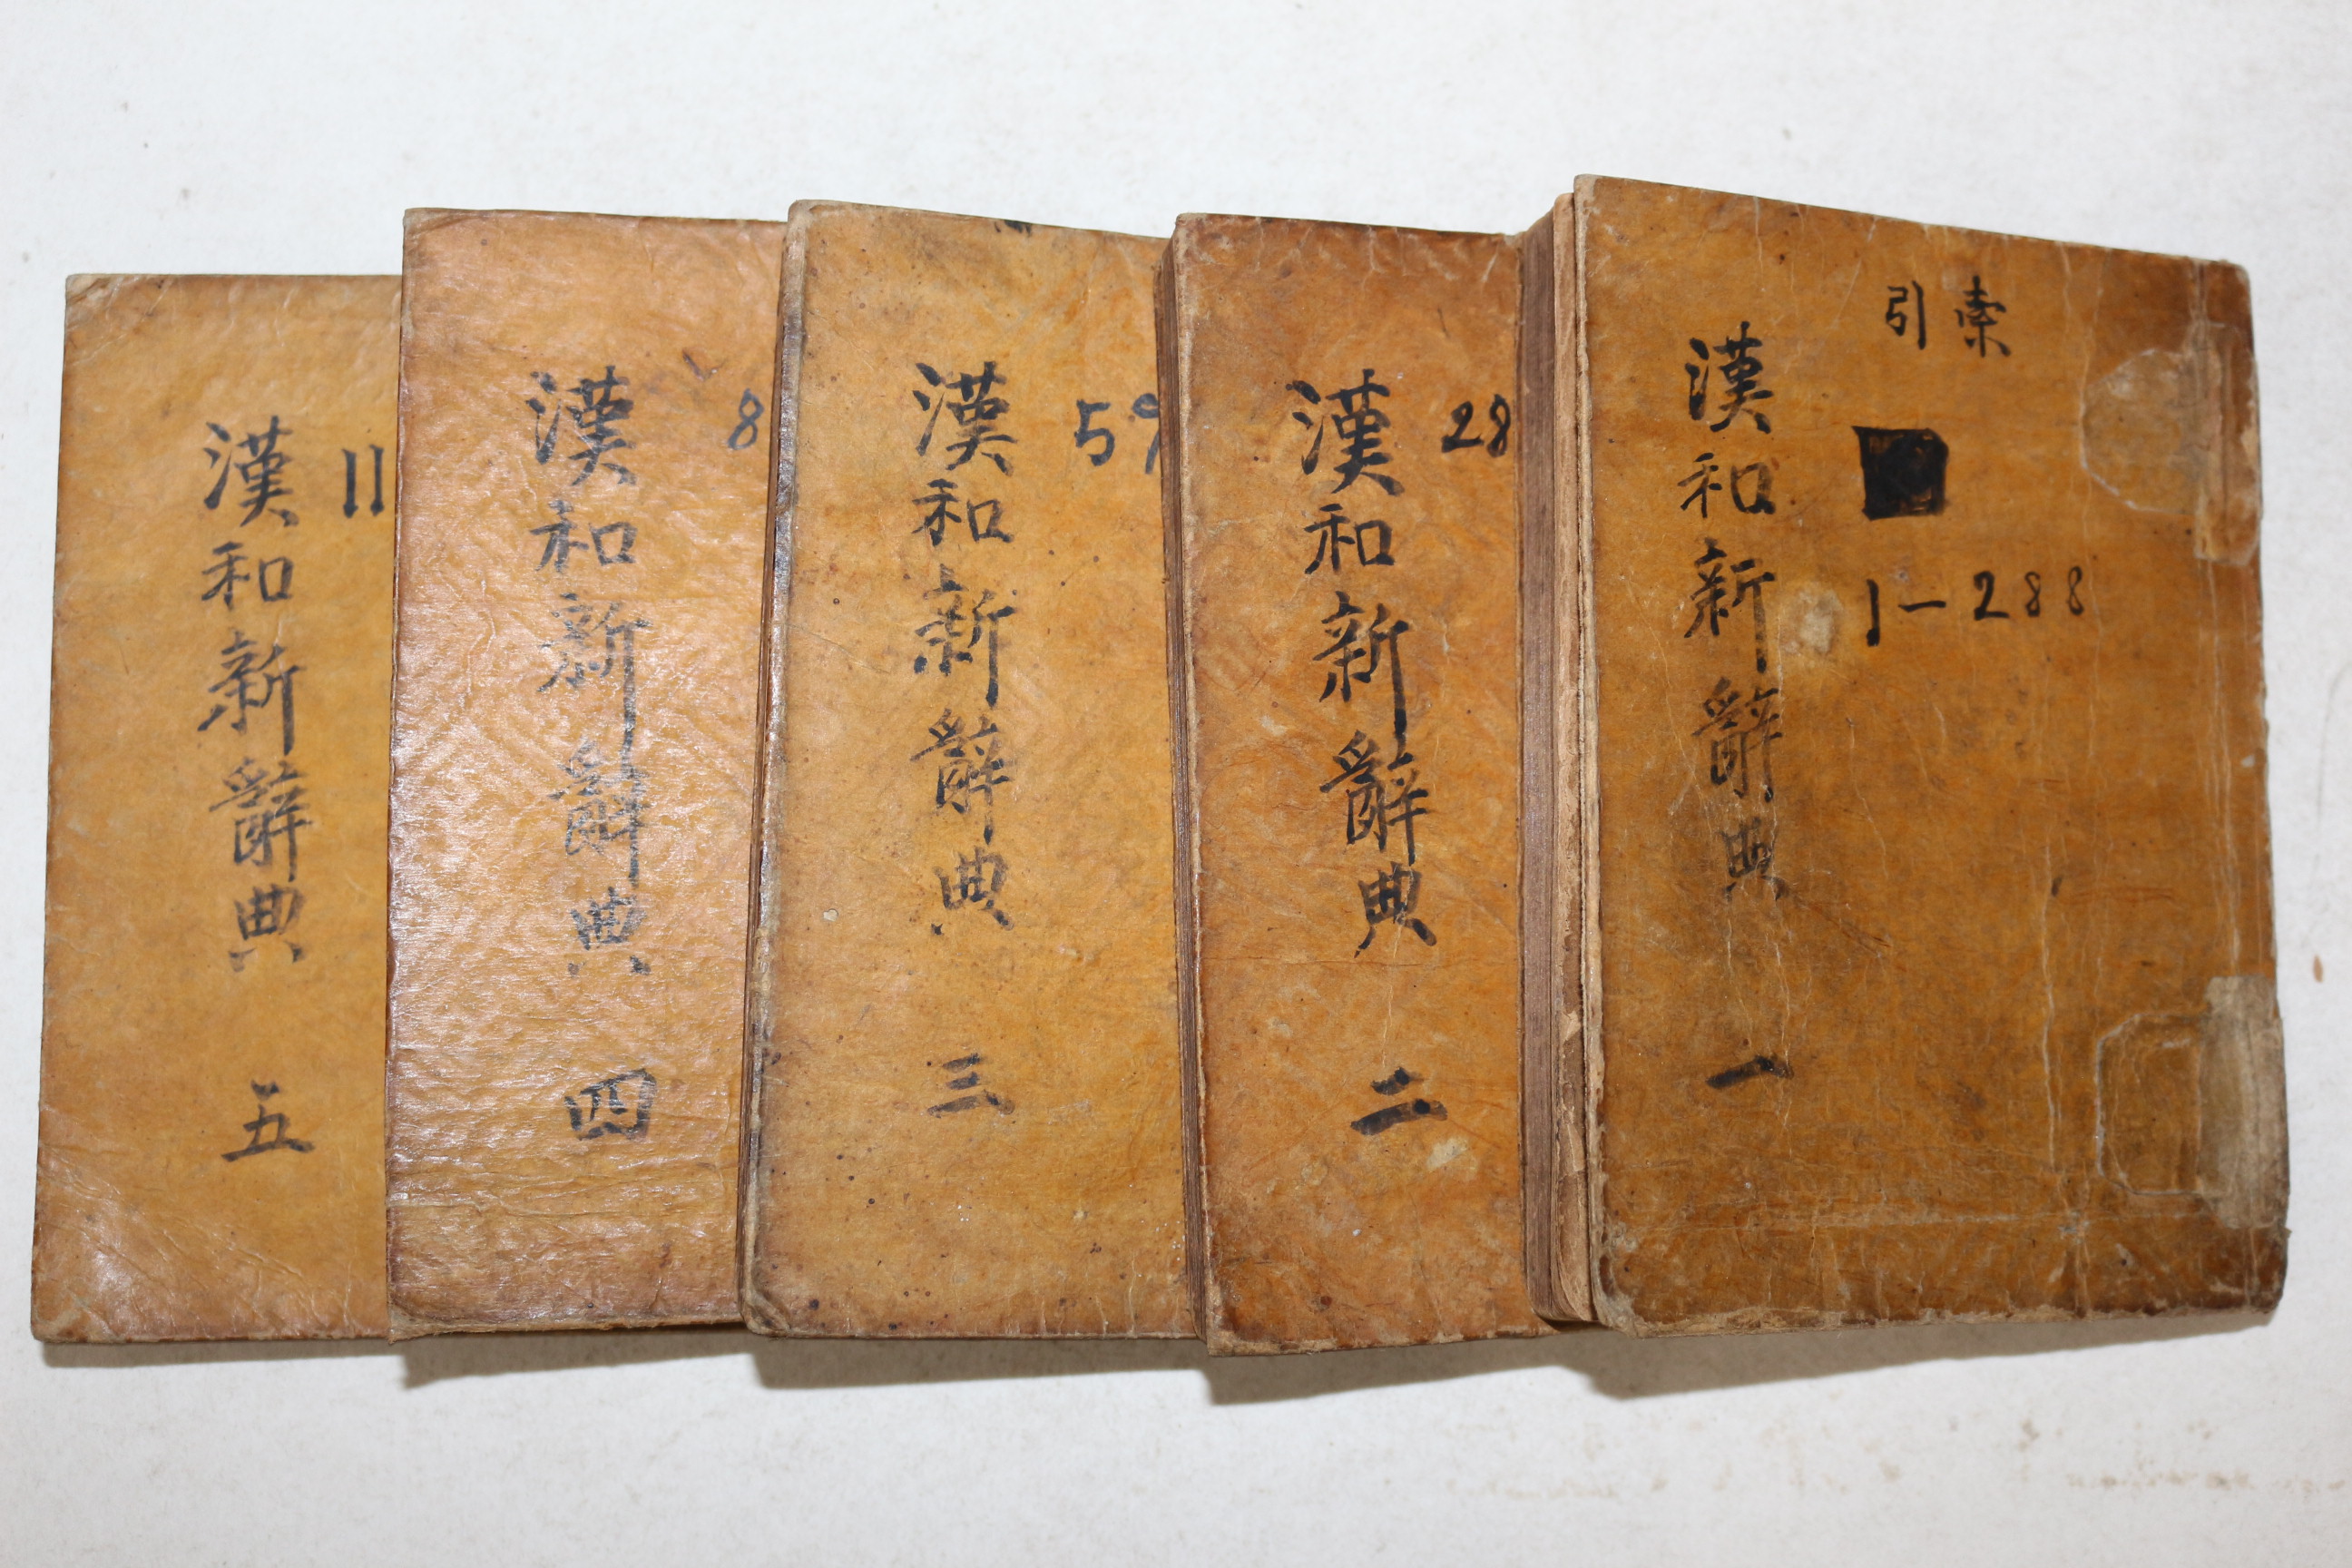 引索
1-288
漢和新辭典 一
28
漢和新辭典 二
59
漢和新辭典 三
8
漢和新辭典 四
11
漢和新辭典 五